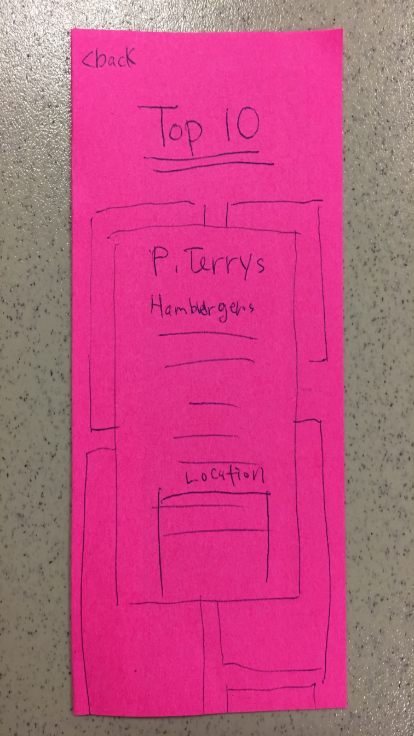 <back
Top 10
P. Terrys
Hamburgers
Location